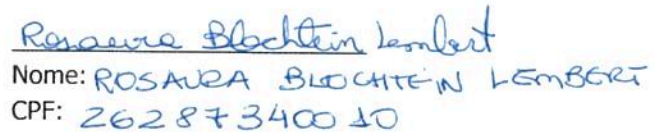 Rosaura Blochtein Lembert
Nome: ROSAURA BLOCHTEIN LEMBERT
CPF: 26287340010